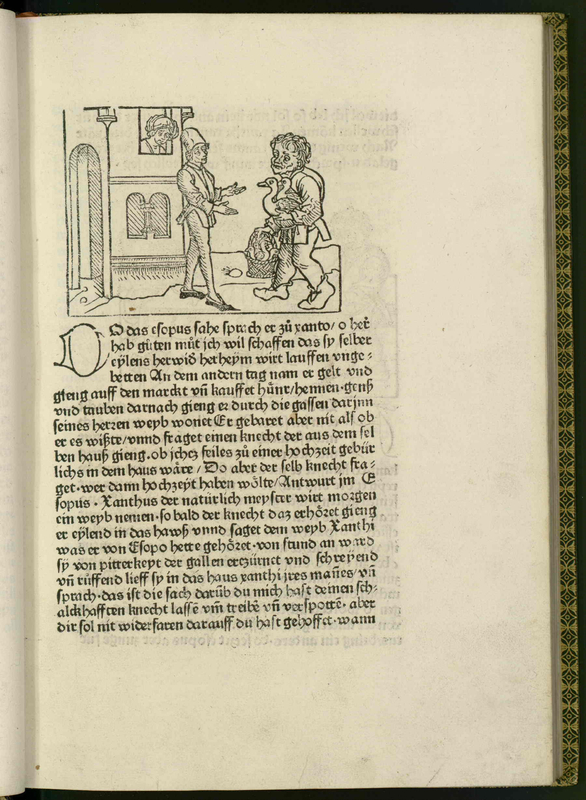 DO das esopus sahe sprach er zů xanto/ o her̃
hab gůten můt jch wil schaffen das sy selber
eylens herwid̕ herheym wirt lauffen vnge⸗
betten An dem andern tag nam er gelt vnd
gieng auff den marckt vñ kauffet hůnr/hennen·genß
vnd tauben darnach gieng er durch die gassen darjnn
seines herren weyb wonet Er gebaret aber nit als ob
er es wißte/vnnd fraget einen knecht der aus dem sel
ben hauß gieng.ob jchcz feiles zů einer hochzeit gebür
lichs in dem haus wåre/ Do aber der selb knecht fra⸗
get·wer dann hochzeyt haben wőlte/Antwurt jm E
sopus · Xanthus der natürlich meyster wirt morgen
ein weyb nemen·so bald der knecht daz erhőret gieng
er eylend in das hawß vnnd saget dem weyb Xanthi
was er von Esopo hette gehőret·von stund an ward
sy von pitterkeyt der gallen erczürnet vnd schreyend
vñ růffend lieff sy in das haus xanthi jres mañes/vñ
sprach·das ist die sach darüb du mich hast deinen sch⸗
alckhafften knecht lasse vm̄ treibē vñ verspottē· aber
dir sol nit widerfaren darauff du hast gehoffet·wann